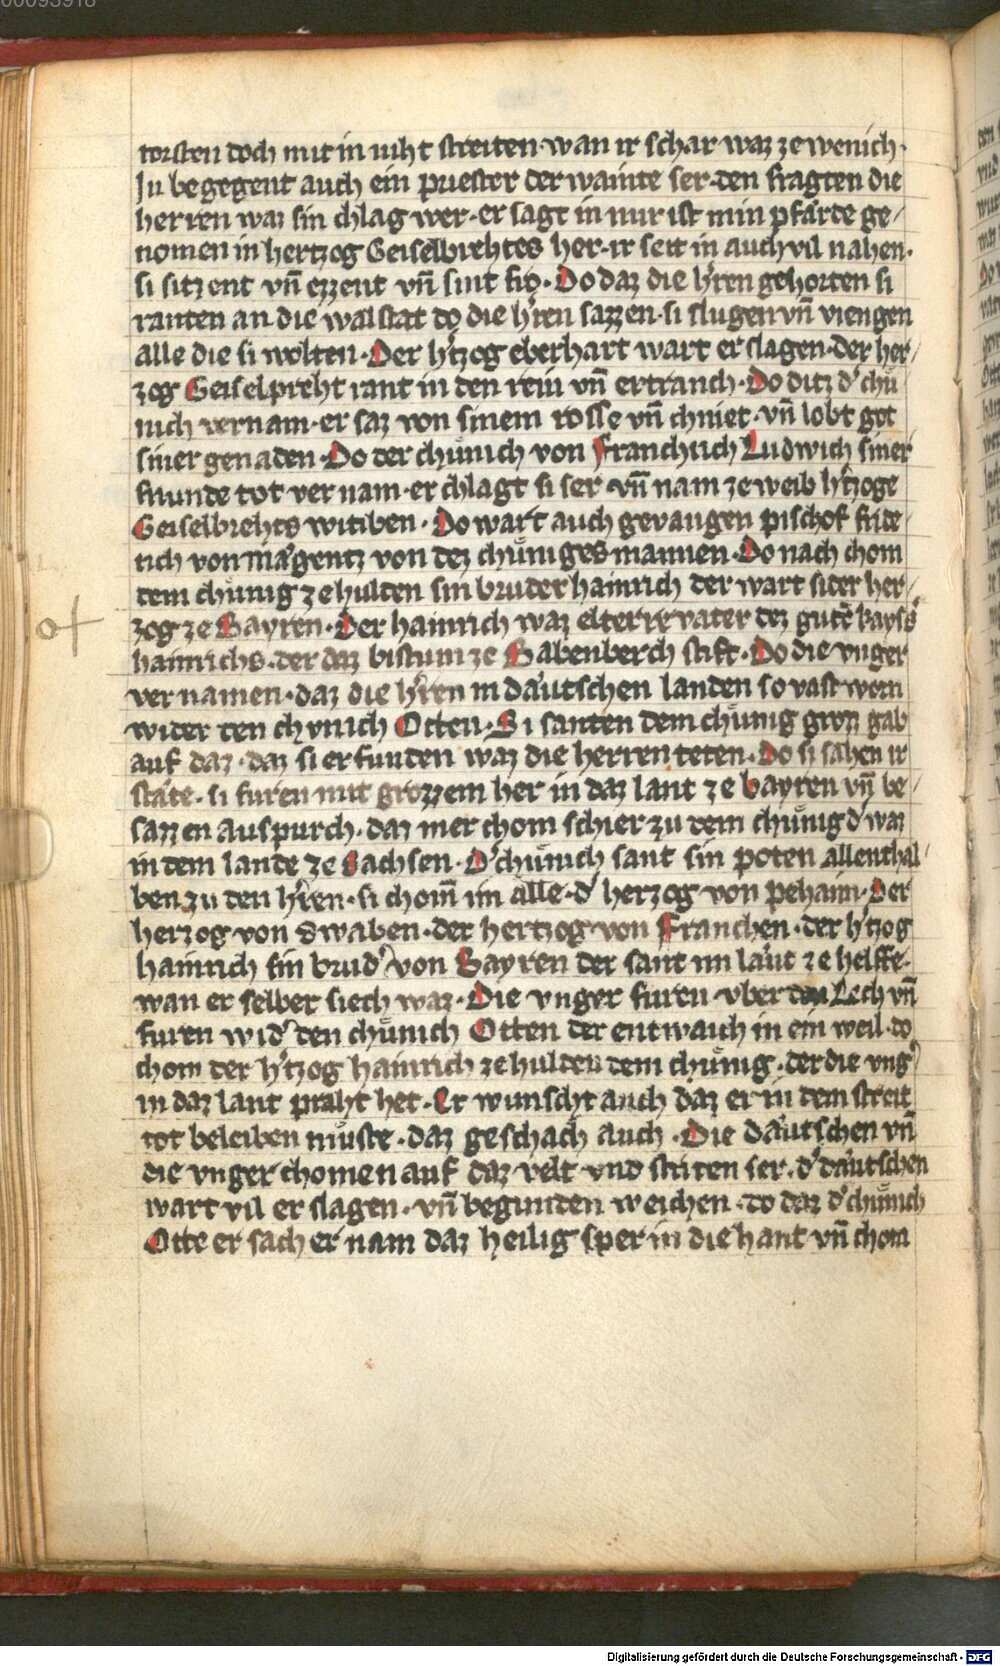 torsten doch mit in niht streiten·wan ir schar waz ze wenich·
In begegent auch ein priester der wainte ser·den fragten die
herren waz sin chlag wer·er sagt in mir ist min pfärde ge/
nomen in hertzog Geiselbrehtes her·ir seit in auch vil nahen·
si sitzent vn̄ ezzent vn̄ sint fro·Do daz die h'ren gehorten si
ranten an die walstat do die h'ren sazzen·si slugen vn̄ viengen
alle die si wolten·Der h'tzog eberhart wart erslagen·der her/
zog Geiselpreht rant in den rein vn̄ ertranch·Do ditz d' chü
nich vernam·er saz von sinem rosse vn̄ chniet·vn̄ lobt got
siner genaden·Do der chünich von Franchrich Ludwich siner
friunde tot vernam·er chlagt si ser·vn̄ nam ze weib h'tzoge
Geiselbrehts witiben·Do wart auch gevangen pischof fride/
rich von Mägentz von dez chüniges mannen·Do nach chom
dem chünig ze hulden sin bruder hainrich der wart sider her/
zog ze Bayren·Der hainrich waz elter re vater dez gutē kays's
hainrichs·der daz bistum ze Babenberch stift·Do die vnger
vernamen·daz die h'ren in däutschen landen so vast worn
wider den chvnich Otten·Si santen dem chünig groz gab
auf daz·daz si erfunden waz die herren teten·Do si sahen ir
state·si furen mit grozzem her in daz lant ze bayren vn̄ be/
sazzen auspurch·daz mer chom schier zu dem chünig d' waz
in dem lande ze Sachsen·D' chünich sant sin poten allenthal/
ben zu den h'ren·si chom̄ im alle·d' herzog von pehaim·Der
herzog von Swaben·der hertzog von Franchen·der h'tzog
hainrich sin brud' von Bayren der sant im läut ze helffe·
wan er selber siech waz·Die vnger furen·vber den Lech vn̄
furen wid' den chünich Otten der entwaich in ein weil·do
chom der h'tzog hainrich ze hulden dem chünig·der die vng'
in daz lant praht het·Er wunscht auch daz er in dem streit
tot beleiben müste·daz geschach auch·Die däutschen vn̄
die vnger chomen auf daz velt vnd striten ser·d' däutschen
wart vil erslagen·vn̄ begunden weichen·do daz d' chünich
Otte ersach er nam daz heilig sper in die hant vn̄ chom
Digitalisierung gefördert durch die Deutsche Forschungsgemeinschaft - DFG